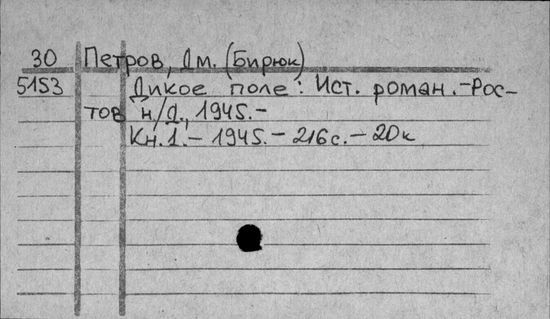 30 Петров, Дм. (Бирюк)
5153 Дикое поле: Ист. роман.-Рос-
тов н/Д., 1945.-
Кн.1.- 1945.- 216с.- 20к